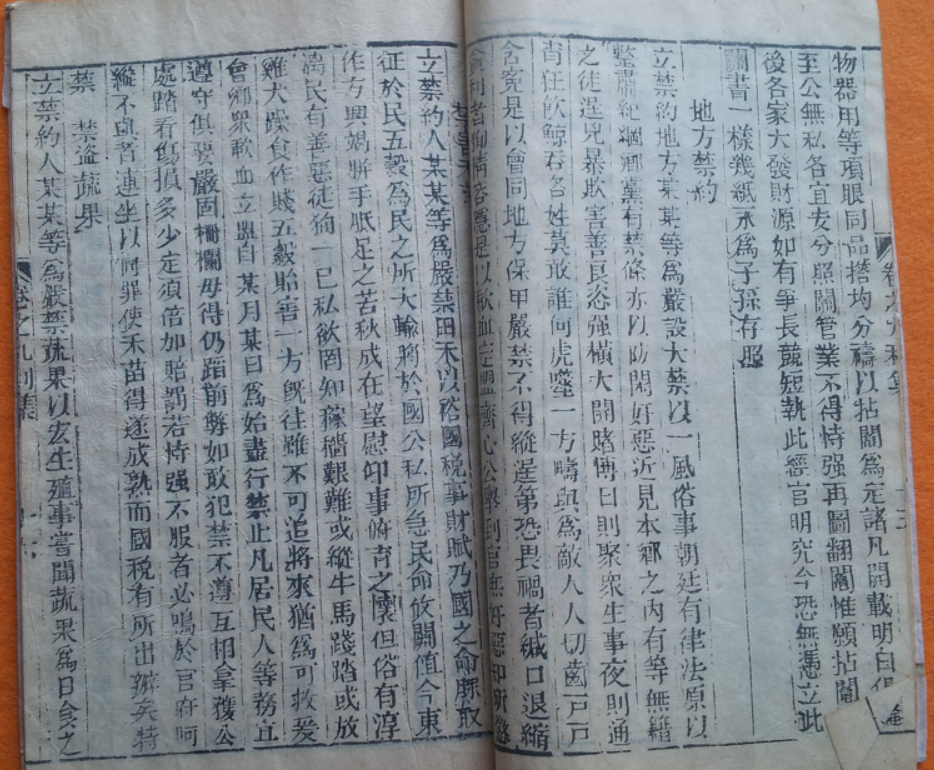 物器用等項眼同品搭均分禱以拈鬮為定諸凡開載明白俱
至公無私各宜安分照鬮管業不得恃强再圖翻鬮惟願拈鬮
後各家大發財源如有爭長競短執此經官明究今恐無憑立此
鬮書一樣幾紙永為子孫存照
地方禁約
立禁約地方某某等為嚴設大禁以一風俗事朝廷有律法原以
整肅紀綱鄉黨有禁條亦以防閑奸惡近見本鄉之內有等無籍
之徒逞兇暴欺害善良恣强橫大開賭博日則聚衆生事夜則通
宵狂飲鯨吞各姓莫敢誰何虎噬一方疇與為敵人人切齒戶戶
含寃是以會同地方保甲嚴禁不得縱逞第恐畏禍者緘口退縮
貪利者徇情容隱是以歃血定盟齊心公舉到官無奸惡
立禁約人某某等為嚴禁田禾以裕國稅事財賦乃國之命脉取
征於民五穀為民之所大輸將於國公私所急民命攸關值今東
作方興媧胼手胝足之苦秋成在望慰仰事俯育之懷但俗有淳
漓民有善惡徒狥一已私欲罔知稼穡艱難或縱牛馬踐踏或放
雞犬躁食作賤五穀貽害一方旣往雖不可追將來猶為可救爰
會鄉衆歃血立盟自某月某日為始盡行禁止凡居民人等務宜
遵守俱要嚴固柵欄毋得仍蹈前弊如敢犯禁不遵互相拿獲公
處踏看傷損多少定須倍加賠罰若恃强不服者必鳴於官府呵
縱不與者連坐以阿罪使禾苗得遂成熟而國稅有所出辦矣特
禁
禁盜蔬果
立禁約人某某等為嚴禁蔬果以宏生殖事嘗聞蔬果為日食之